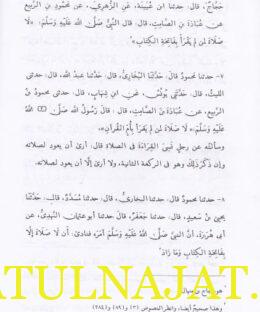 حجاج، قال: حدثنا ابن عيينة، عن الزهري، عن محمود بن الربيع
عن عبادة بن الصامت، قال: قال النبي صلى الله عليه وسلم: «لا
صلاة لمن لم يقرأ بفاتحة الكتاب»
٧- حدثنا محمود قال: حدثنا البخاري، قال: حدثنا عبد الله، قال: حدثني
الليث، قال: حدثني يونس، عن ابن شهاب، قال: حدثني محمود بن
الربيع، عن عبادة بن الصامت، قال: قال رسول الله صلى الله عليه
وسلم: «لا صلاة لمن لم يقرأ بأم القرآن».
وسألته عن رجل نسي القراءة في الصلاة قال: أرى أن يعود لصلاته
وإن ذكر ذلك وهو في الركعة الثانية، ولا أرى إلا أن يعود لصلاته.
٨- حدثنا محمود قال: حدثنا البخاري، قال: حدثنا مسدد، قال: حدثنا
يحيى بن سعيد، قال: حدثنا جعفر، قال: حدثنا أبو عثمان النهدي، عن
أبي هريرة، أن النبي صلى الله عليه وسلم أمره فنادى: أن لا صلاة إلا
بفاتحة الكتاب وما زاد
ATULNAJAT.
منهال
وهذا صحيح أيضا، وانظر النصوص (٣) و(٨٩) و(٢٨٤)